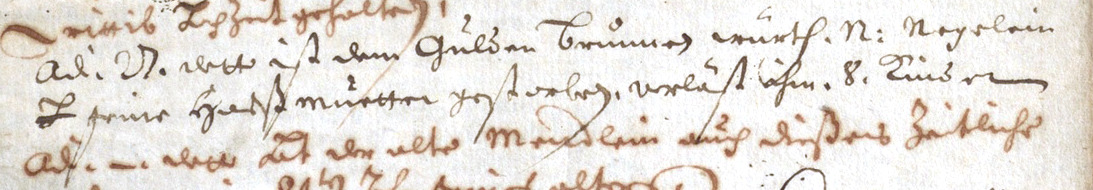 Hochzeit gehalten,
Adj. detto ist dem Gulden Brunnen würth. N: Negelein
seine Haußmuetter gestorben, verläst ihm. 8. Kinder
Adj. detto hat der alte Mendlein auch dießes Zeitliche